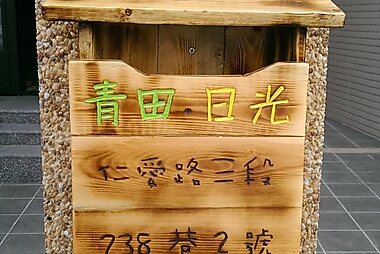 青田·日光
仁愛路三段
238巷2號